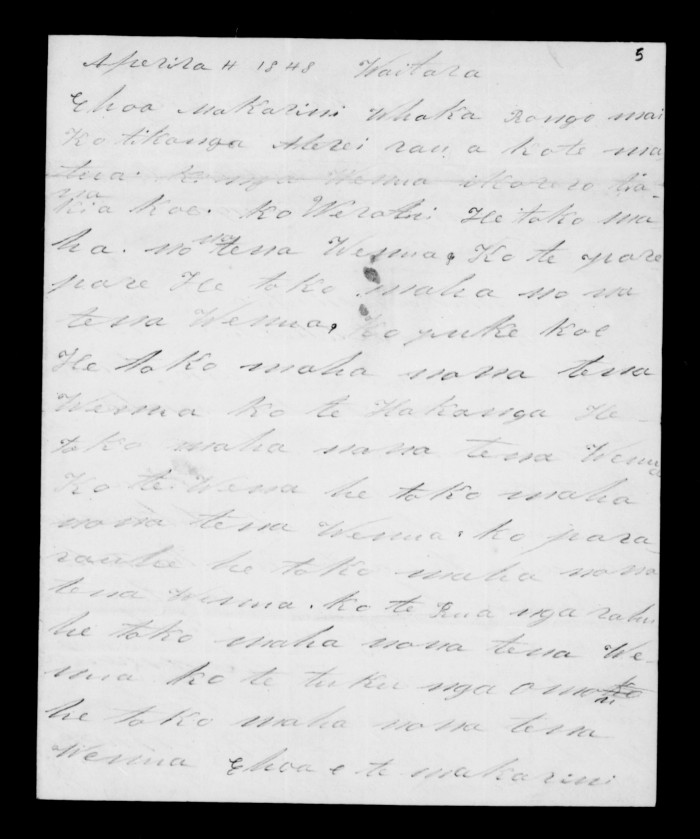 5
Aperira 4 1848 Waitara
Ehoa Makarini Whaka Rongo mai
Ko tikanga Aterei rau, a kote ma
tua. Wenua Korero tia
na
Kia koe. Ko Werohi He toko ma
ha. no na tena Wenua, Ko te pare
pare He toko maha no na
tena Wenua, Ko puke koe
He toko maha nona tena
Wenua ko te Hakanga He
toko maha nona tena Wenua
Ko te Wena he toko maha
nona tena Wenua. ko para
rauhe he toko maha nona
tena Wenua. ko te Rua nga rahu
he toko maha nona tena We-
nua ko te tuku nga
he toko maha nona tena
Wenua Ehoa e te makarini